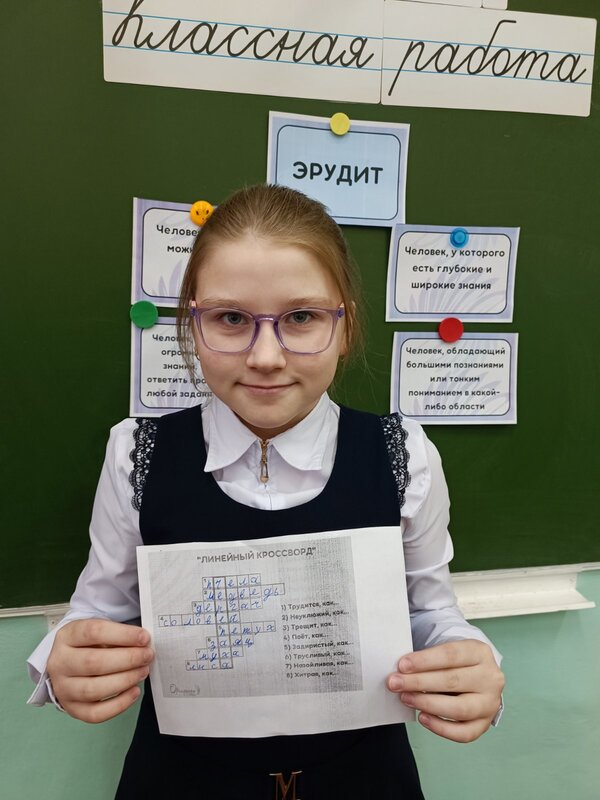 Классная работа
ЭРУДИТ
Человек
можн
Человек, у которого
есть глубокие и
широкие знания
Человек,
огромн
знаний
ответить
любой
Человек, обладающий
большими познаниями
или тонким
пониманием в какой-
либо области
"ЛИНЕЙНЫЙ КРОССВОРД"
пчела
медведь
дергач
соловей
петух
заяц
муха
лиса
1) Трудится, как...
2) Неуклюжий, как...
3) Трещит, как...
4) Поёт, как...
5) Задиристый, как...
6) Трусливый, как...
7) Назойливая, как...
8) Хитрая, как...
М